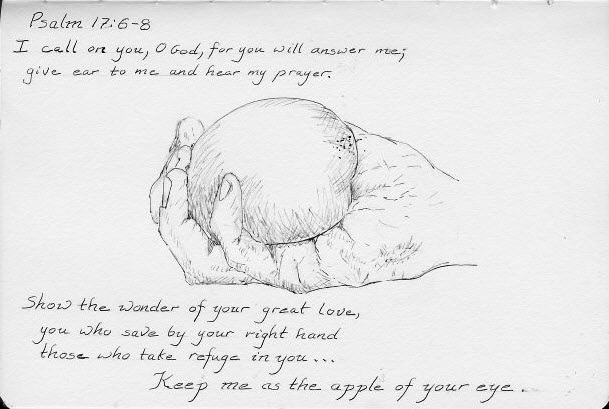 Psalm 17:6-8
I call on you, O God, for you will answer me;
give ear to me and hear my prayer.
Show the wonder of your great love,
you who save by your right hand
those who take refuge in you...
Keep me as the apple of your eye.